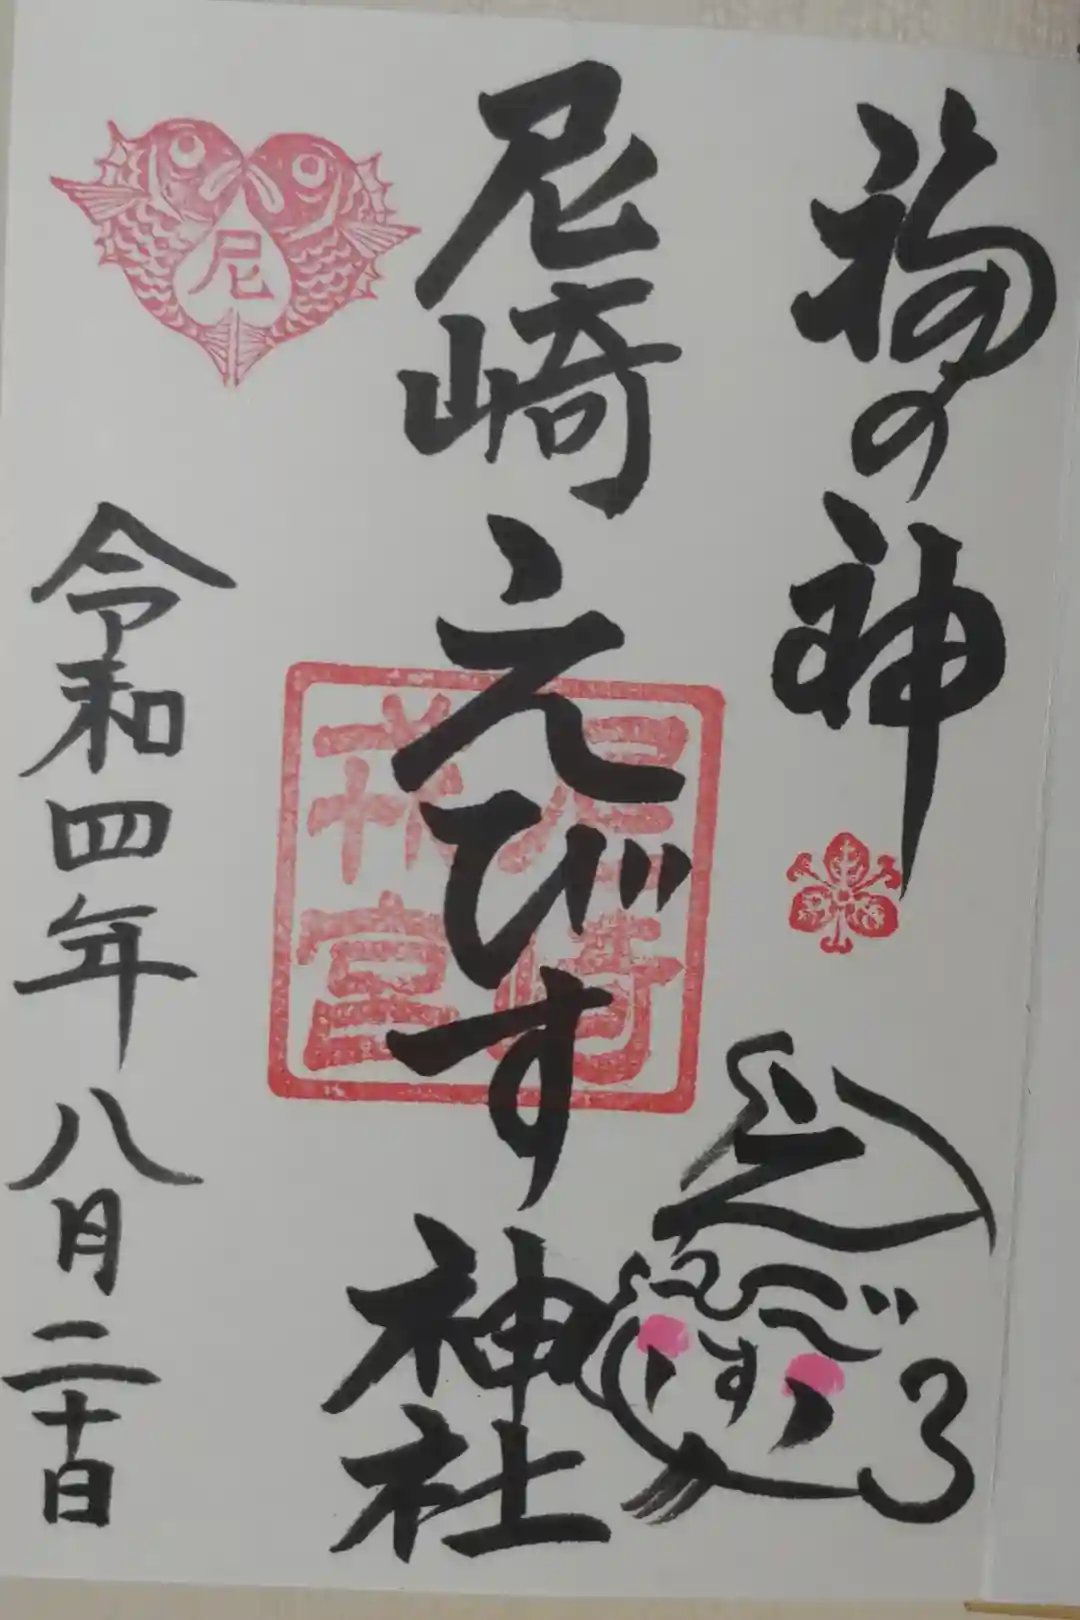 福の神
尼崎えびす神社
尼崎
戎宮
えびす
尼
令和四年八月二十日